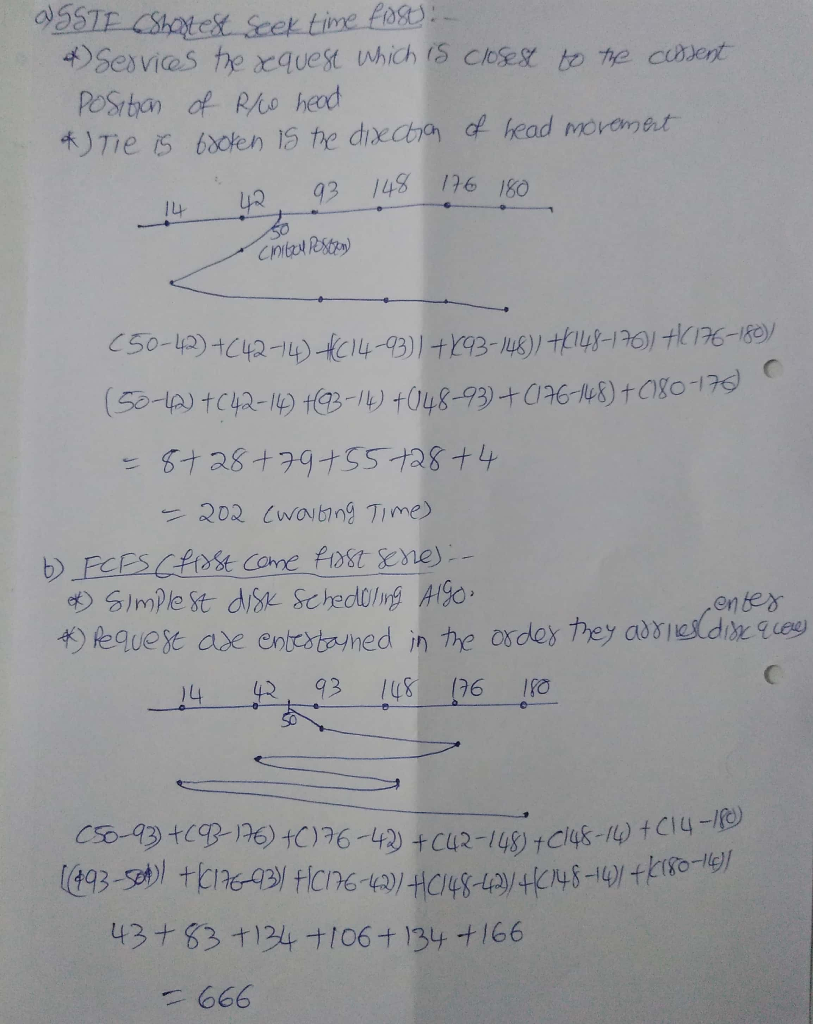 a) SSTF (Shortest Seek time first):-
*) Services the request which is closest to the current
Position of R/w head
*) Tie is broken is the direction of head movement
14 42 93 148 176 180
50
(initial Position)
(50-42)+(42-14)+|(14-93)|+|(93-148)|+|(148-176)|+|(176-180)|
(50-42)+(42-14)+(93-14)+(148-93)+(176-148)+(180-176)
= 8+28+79+55+28+4
= 202 (waiting Time)
b) FCFS (first come first serve):--
*) Simplest disk scheduling Algo.
enter
*) Request are entertained in the order they arrives (disk queue)
14 42 93 148 176 180
50
(50-93)+(93-176)+(176-42)+(42-148)+(148-14)+(14-180)
|(93-50)|+|(176-93)|+|(176-42)|+|(148-42)|+|(148-14)|+|(180-14)|
43+83+134+106+134+166
= 666